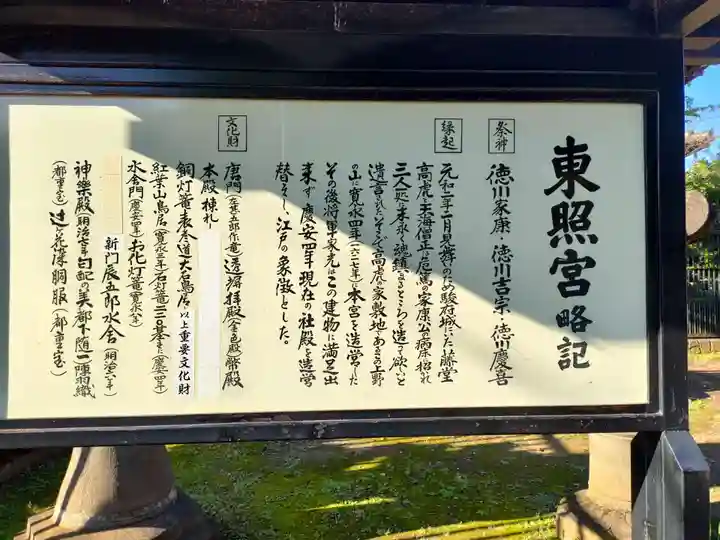 東照宮略記
祭神
徳川家康 徳川吉宗 徳川慶喜
縁起
元和二年二月見舞のため駿府城にいた藤堂
高虎と天海僧正は危篤の家康公の病床に招かれ
三人一処に末永く魂鎮まるところを造って欲しいと
遺言されたそこで高虎の家敷地であるこの上野
の山に寛永四年(一六二七年)に本宮を造営した
その後将軍家光はこの建物に満足出
来ず慶安四年現在の社殿を造営
替えし、江戸の象徴とした。
文化財
唐門(左甚五郎作竜)透塀 拝殿(金色殿)幣殿
本殿 棟札
銅灯篭(表参道)大石鳥居 以上重要文化財
紅葉山鳥居 石灯篭
水舎門(慶安四年)お花灯篭(寛永八年)
新門辰五郎水舎(明治六年)
神楽殿(明治
(都重宝) 辻ヶ花染胴服(都重宝)